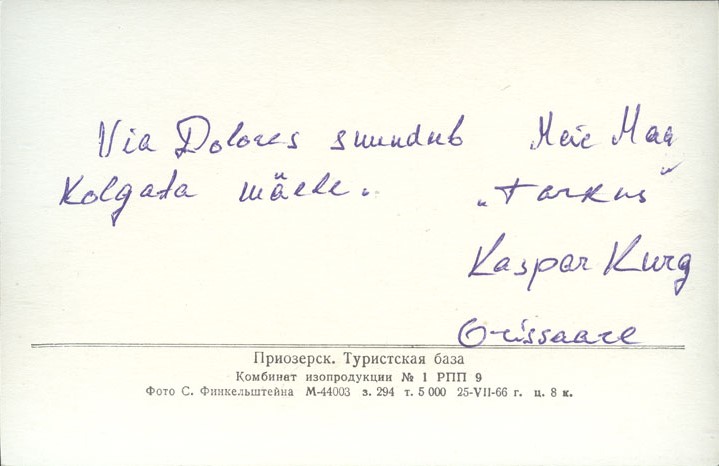 Via Dolores suundub Meie Maa
Kolgata mäele. „Tarkus"
Kaspar Kurg
Orissaare
Приозерск. Туристская база
Комбинат изопродукции № 1 РПП 9
Фото С. Финкельштейна М-44003 з. 294 т. 5 000 25-VII-66 г. ц. 8 к.